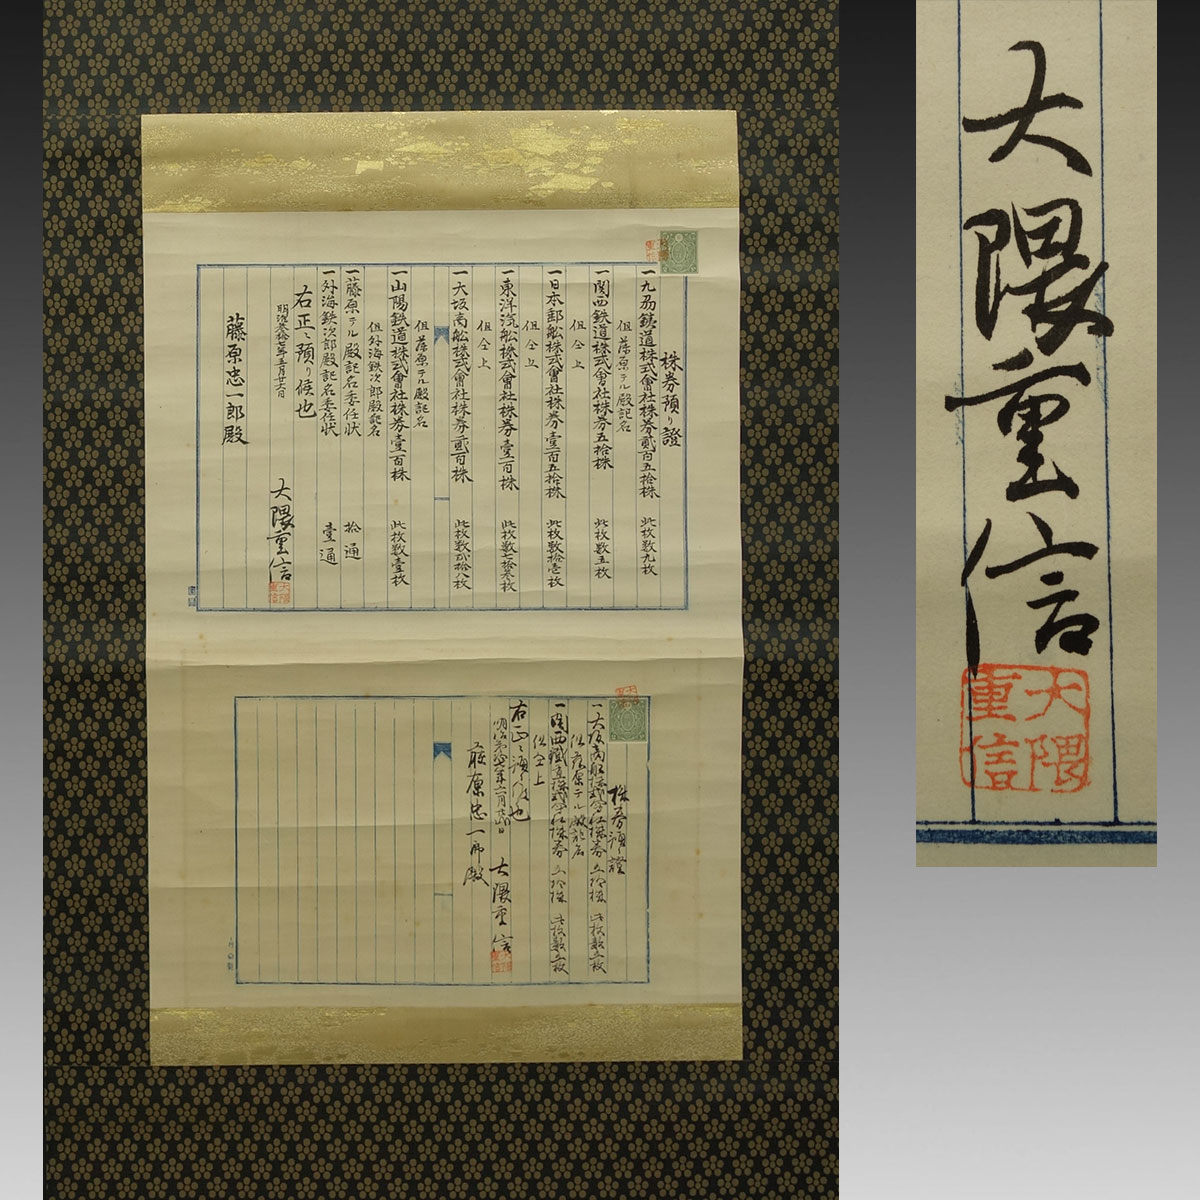 株券預り證
一九州鉄道株式會社株券貳百五拾株 此枚数九枚
但藤原テル殿記名
一関西鉄道株式會社株券五拾株 此枚数五枚
但仝上
一日本郵舩株式會社株券壹百五拾株 此枚数拾壱枚
但仝上
一東洋汽舩株式會社株券壹百株 此枚数七拾参枚
但仝上
一大坂商舩株式會社株券貳百株 此枚数弐拾八枚
但藤原テル殿記名
一山陽鉄道株式會社株券壹百株 此枚数壹枚
但外海鉄次郎殿記名
一藤原テル殿記名委任状 拾通
一外海鉄次郎殿記名委任状 壹通
右正ニ預り候也
明治参拾七年五月廿六日
大隈重信
大隈重信
藤原忠一郎殿
株券預り證
一大坂商舩株式會社株券五拾株 此枚数五枚
但藤原テル殿記名
一関西鐵道株式會社株券五拾株 此枚数五枚
但仝上
右正ニ預り候也
大隈重信
大隈重信
藤原忠一郎殿
大隈重信
大隈重信